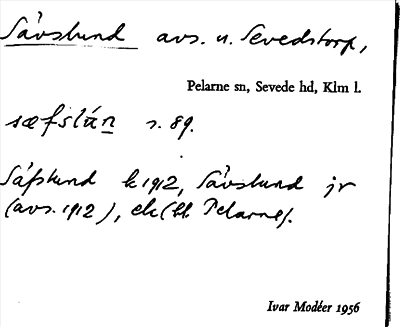 Sävslund avs. u. Sevedstorp,
Pelarne sn, Sevede hd, Klm l.
sæfslán s. 89.
Säfslund k 1912, Sävslund jr
(avs. 1912), ek (bl. Pelarne).
Ivar Modéer 1956